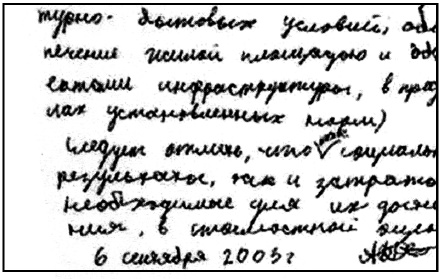 турно-бытовых условий, обе
печение жилой площадью и объ
ектами инфраструктуры, в пред
лах установленных норм)
Следует отметить, что как социаль
результаты, так и затраты
необходимые для их дости
ния, в стоимостной оцен
6 сентября 2003 г